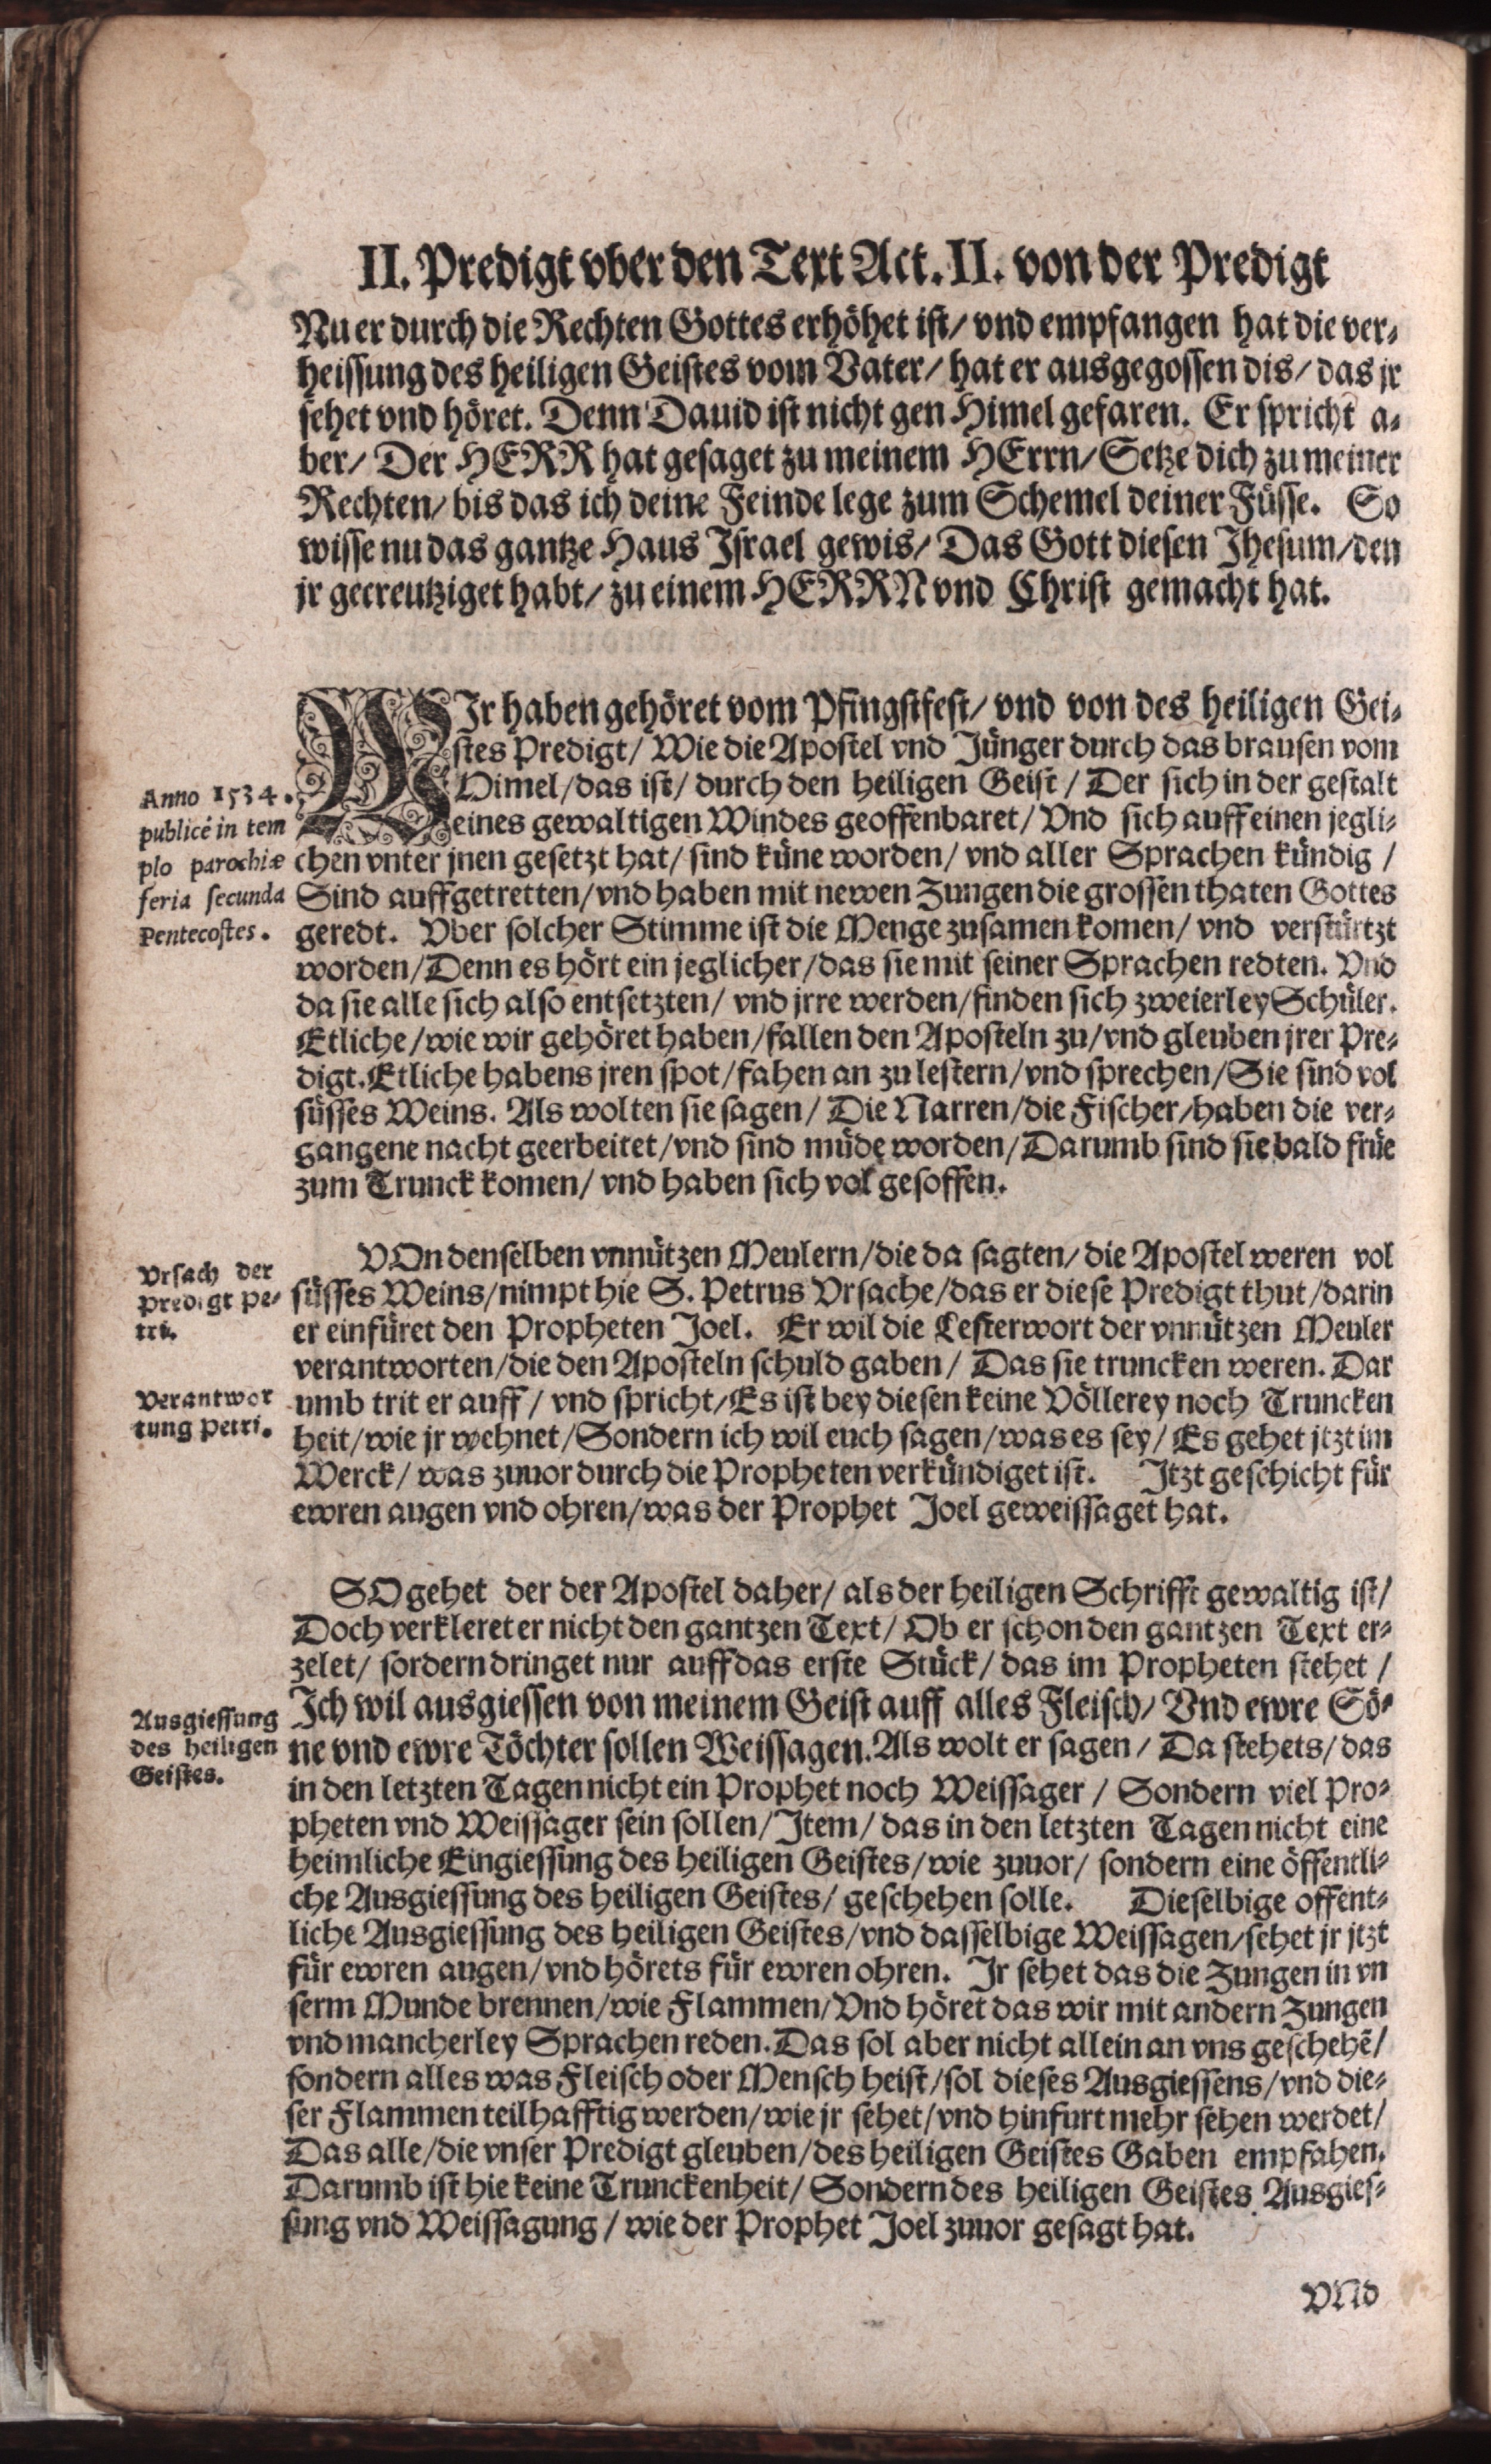 II. Predigt vber den Text Act. II. von der Predigt
Nu er durch die Rechten Gottes erhöhet ist/ vnd empfangen hat die ver-
heissung des heiligen Geistes vom Vater/ hat er ausgegossen dis/ das jr
sehet vnd höret. Denn Dauid ist nicht gen Himel gefaren. Er spricht a-
ber/ Der HERR hat gesaget zu meinem HErrn/ Setze dich zu meiner
Rechten/ bis das ich deine Feinde lege zum Schemel deiner Füsse. So
wisse nu das gantze Haus Israel gewis/ Das Gott diesen Jhesum/ den
jr gecreutziget habt/ zu einem HERRN vnd Christ gemacht hat.
WIr haben gehöret vom Pfingstfest/ vnd von des heiligen Gei-
stes Predigt/ Wie die Apostel vnd Jünger durch das brausen vom
Himel/ das ist/ durch den heiligen Geist/ Der sich in der gestalt
eines gewaltigen Windes geoffenbaret/ Vnd sich auff einen jegli-
chen vnter jnen gesetzt hat/ sind küne worden/ vnd aller Sprachen kündig/
Sind auffgetretten/ vnd haben mit newen Zungen die grossen thaten Gottes
geredt. Vber solcher Stimme ist die Menge zusamen komen/ vnd verstürtzt
worden/ Denn es hört ein jeglicher/ das sie mit seiner Sprachen redten. Vnd
da sie alle sich also entsetzten/ vnd jrre werden/ finden sich zweierley Schüler.
Etliche/ wie wir gehöret haben/ fallen den Aposteln zu/ vnd gleuben jrer Pre-
digt. Etliche habens jren spot/ fahen an zu lestern/ vnd sprechen/ Sie sind vol
süsses Weins. Als wolten sie sagen/ Die Narren/ die Fischer/ haben die ver-
gangene nacht geerbeitet/ vnd sind müde worden/ Darumb sind sie bald früe
zum Trunck komen/ vnd haben sich vol gesoffen.
Anno 1534.
publicè in tem
plo parochiæ
feria secunda
Pentecostes.
VOn denselben vnnützen Meulern/ die da sagten/ die Apostel weren vol
süsses Weins/ nimpt hie S. Petrus Vrsache/ das er diese Predigt thut/ darin
er einfüret den Propheten Joel. Er wil die Lesterwort der vnnützen Meuler
verantworten/ die den Aposteln schuld gaben/ Das sie truncken weren. Dar
umb trit er auff/ vnd spricht/ Es ist bey diesen keine Völlerey noch Truncken
heit/ wie jr wehnet/ Sondern ich wil euch sagen/ was es sey/ Es gehet jtzt im
Werck/ was zuuor durch die Propheten verkündiget ist. Jtzt geschicht für
ewren augen vnd ohren/ was der Prophet Joel geweissaget hat.
Vrsach der
Predigt Pe-
tri.
Verantwor
tung Petri.
SO gehet der der Apostel daher/ als der heiligen Schrifft gewaltig ist/
Doch verkleret er nicht den gantzen Text/ Ob er schon den gantzen Text er-
zelet/ sordern dringet nur auff das erste Stück/ das im Propheten stehet/
Ich wil ausgiessen von meinem Geist auff alles Fleisch/ Vnd ewre Sö-
ne vnd ewre Töchter sollen Weissagen. Als wolt er sagen/ Da stehets/ das
in den letzten Tagen nicht ein Prophet noch Weissager/ Sondern viel Pro-
pheten vnd Weissager sein sollen/ Jtem/ das in den letzten Tagen nicht eine
heimliche Eingiessung des heiligen Geistes/ wie zuuor/ sondern eine öffentli-
che Ausgiessung des heiligen Geistes/ geschehen solle. Dieselbige offent-
liche Ausgiessung des heiligen Geistes/ vnd dasselbige Weissagen/ sehet jr jtzt
für ewren augen/ vnd hörets für ewren ohren. Jr sehet das die Zungen in vn
serm Munde brennen/ wie Flammen/ Vnd höret das wir mit andern Zungen
vnd mancherley Sprachen reden. Das sol aber nicht allein an vns geschehē/
sondern alles was Fleisch oder Mensch heist/ sol dieses Ausgiessens/ vnd die-
ser Flammen teilhafftig werden/ wie jr sehet/ vnd hinfurt mehr sehen werdet/
Das alle/ die vnser Predigt gleuben/ des heiligen Geistes Gaben empfahen.
Darumb ist hie keine Trunckenheit/ Sondern des heiligen Geistes Ausgies-
sung vnd Weissagung/ wie der Prophet Joel zuuor gesagt hat.
Ausgiessung
des heiligen
Geistes.
VNd